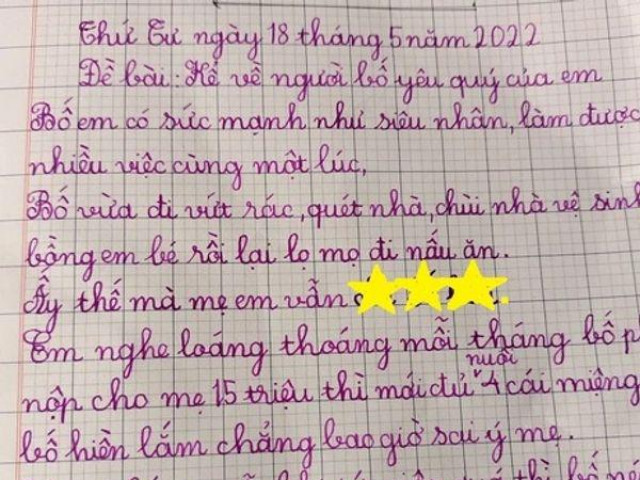 Thứ Tư ngày 18 tháng 5 năm 2022
Đề bài: Kể về người bố yêu quý của em
Bố em có sức mạnh như siêu nhân, làm được
nhiều việc cùng một lúc,
Bố vừa đi vứt rác, quét nhà, chùi nhà vệ sinh
bồng em bé rồi lại lọ mọ đi nấu ăn.
Ấy thế mà mẹ em vẫn
Em nghe loáng thoáng mỗi tháng bố p
nuôi
nộp cho mẹ 15 triệu thì mới đủ 4 cái miệng
bố hiền lắm chẳng bao giờ sai ý mẹ.